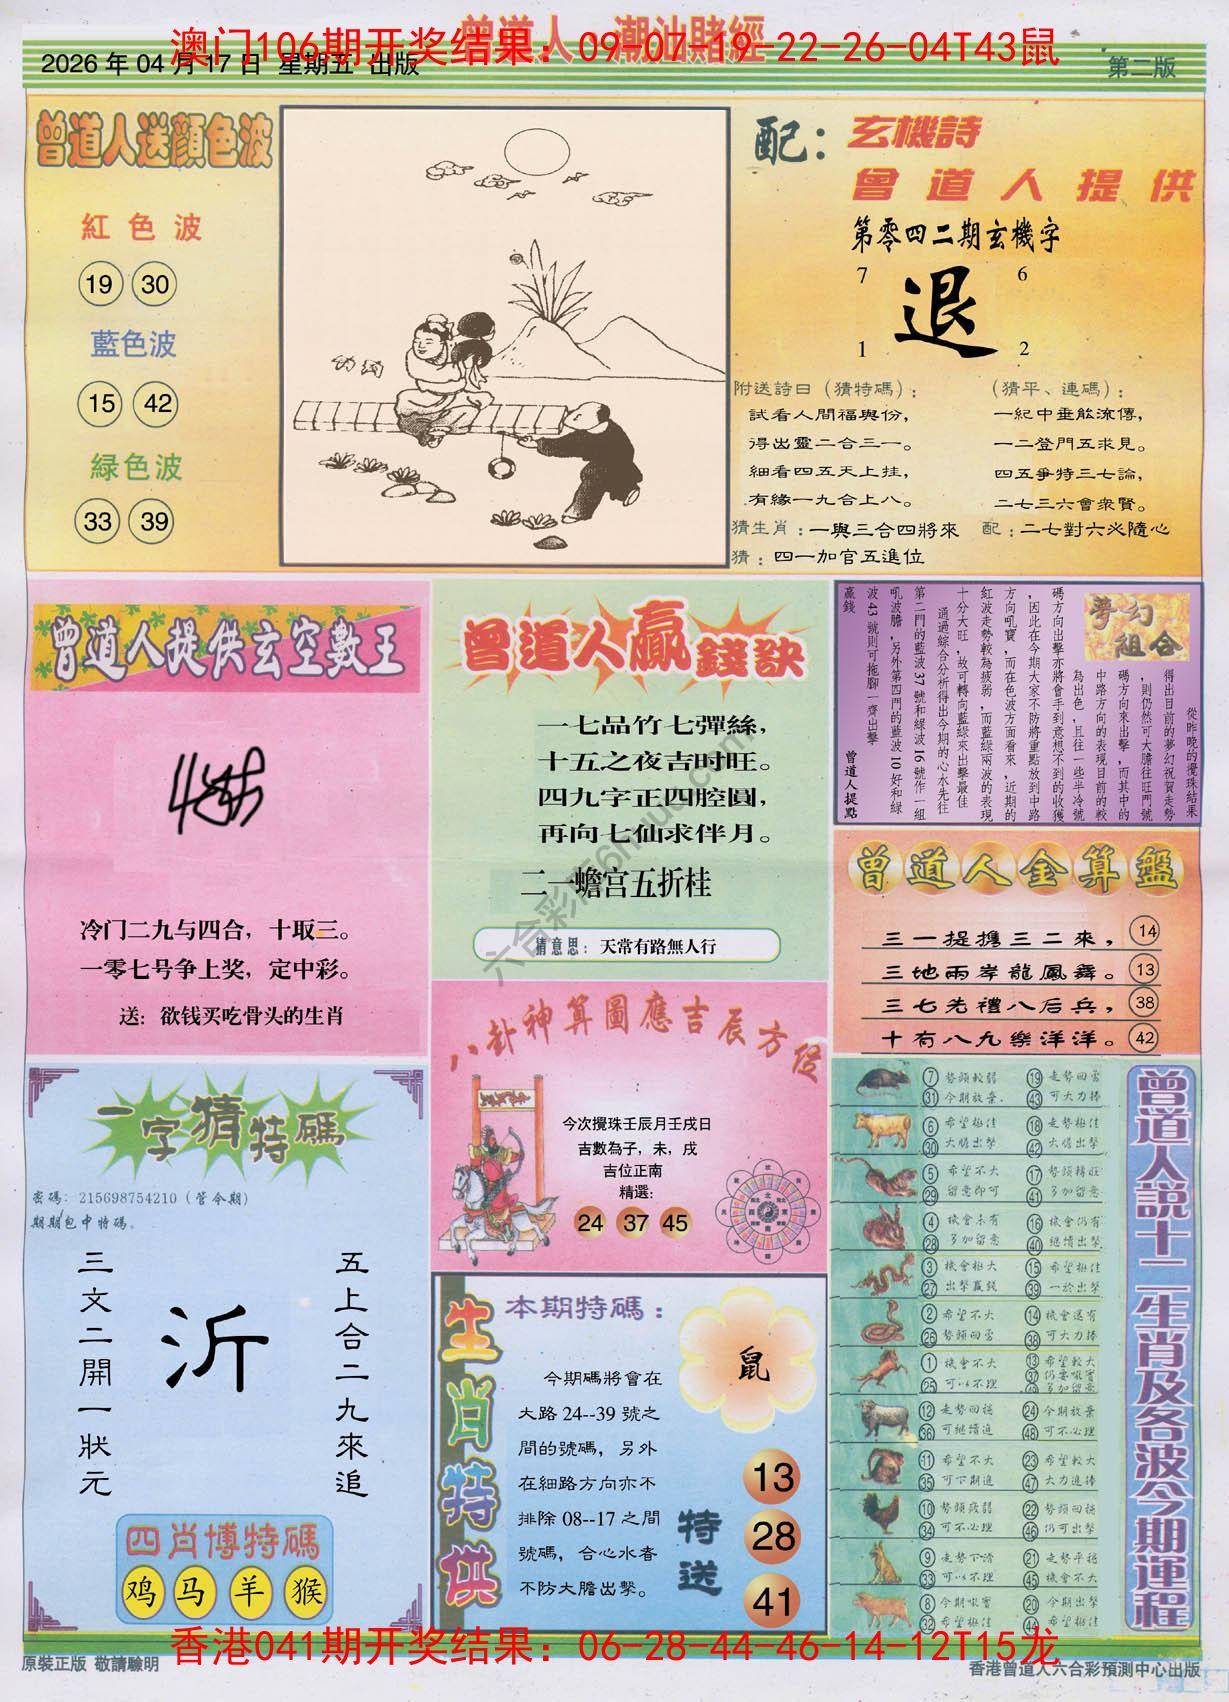 曾道人·潮汕賭經
澳门106期开奖结果：09-07-19-22-26-04T43鼠
2026 年 04 月 17 日 星期五 出版
第二版
曾道人送顏色波
紅色波
19 30
藍色波
15 42
緑色波
33 39
配：
玄機詩
曾道人提供
第零四二期玄機字
7 6
退
1 2
附送詩曰（猜特碼）：
試看人間福與份，
得出靈二合三一。
細看四五天上挂，
有緣一九合上八。
（猜平、連碼）：
一紀中垂能流傳，
一二登門五求見。
四五爭特三七論，
二七三六會衆賢。
猜生肖：一與三合四將來
配：二七對六必隨心
猜：四一加官五進位
曾道人提供玄空數王
冷门二九与四合，十取三。
一零七号争上奖，定中彩。
送：欲钱买吃骨头的生肖
曾道人贏錢訣
一七品竹七彈絲，
十五之夜吉时旺。
四九字正四腔圓，
再向七仙求伴月。
二一蟾宫五折桂
猜意思：天常有路無人行
夢幻組合
從昨晚的攪珠結果
得出目前的夢幻祝賀走勢
，則仍然可大膽往旺門號
碼方向來出擊，而其中的
中路方向的表現目前的較
為出色，且往一些半冷號
碼方向出擊亦將會手到意想不到的收獲
，因此在今期大家不防將重點放到中路
方向吼寶，而在色波方面看來，近期的
紅波走勢較為疲弱，而藍綠兩波的表現
十分大旺，故可轉向藍綠來出擊最佳
通過綜合分析得出今期的心水先往
第二門的藍波 37 號和綠波 16 號作一組
吼波膽，另外第四門的藍波 10 好和綠
波 43 號則可拖腳一齊出擊
贏錢
曾道人提點
曾道人金算盤
三一提携三二來，14
三地兩岸龍鳳舞。13
三七先禮八后兵，38
十有八九樂洋洋。42
八卦神算圖應吉辰方位
今次攪珠壬辰月壬戌日
吉數為子，未，戌
吉位正南
精選：
24 37 45
一字猜特碼
密碼：215698754210（管今期）
期期包中特碼。
三文二開一狀元
沂
五上合二九來追
四肖博特碼
鸡 马 羊 猴
生肖特供
本期特碼：
鼠
今期碼將會在
大路 24--39 號之
間的號碼，另外
在細路方向亦不
排除 08--17 之間
號碼，合心水者
不防大膽出擊。
特送
13
28
41
曾道人説十二生肖及各波今期運程
7 勢頭較弱 19 走勢回雷
31 今期放棄. 43 可大力捧
6 希望極佳 18 走勢極佳
30 大膽出擊 42 大膽出擊
5 希望不大 17 勢頭轉旺
29 留意即可 41 多加留意
4 機會未有 16 機會仍有
28 多加留意 40 継續出擊
3 機會極大 15 希望極佳
27 出擊贏錢 39 一於出擊
2 希望不大 14 機會還有
26 勢頭回雷 38 可大力捧
1 機會不大 13 希望較大
25 可以不理 37 仍要吼實
49 多加留意
12 走勢回穩 24 今期放棄
36 可継續追 48 可不必理
11 希望不大 23 希望較大
35 可下期追 47 大力追捧
10 勢頭致弱 22 勢頭回穩
34 可不必理 46 仍可出擊
9 走勢下滑 21 走勢平穩
33 可以不理 45 機會不大
8 今期吼實 20 今期出擊
32 希望極佳 44 希望極佳
香港041期开奖结果：06-28-44-46-14-12T15龙
原裝正版 敬請驗明
香港曾道人六合彩預測中心出版